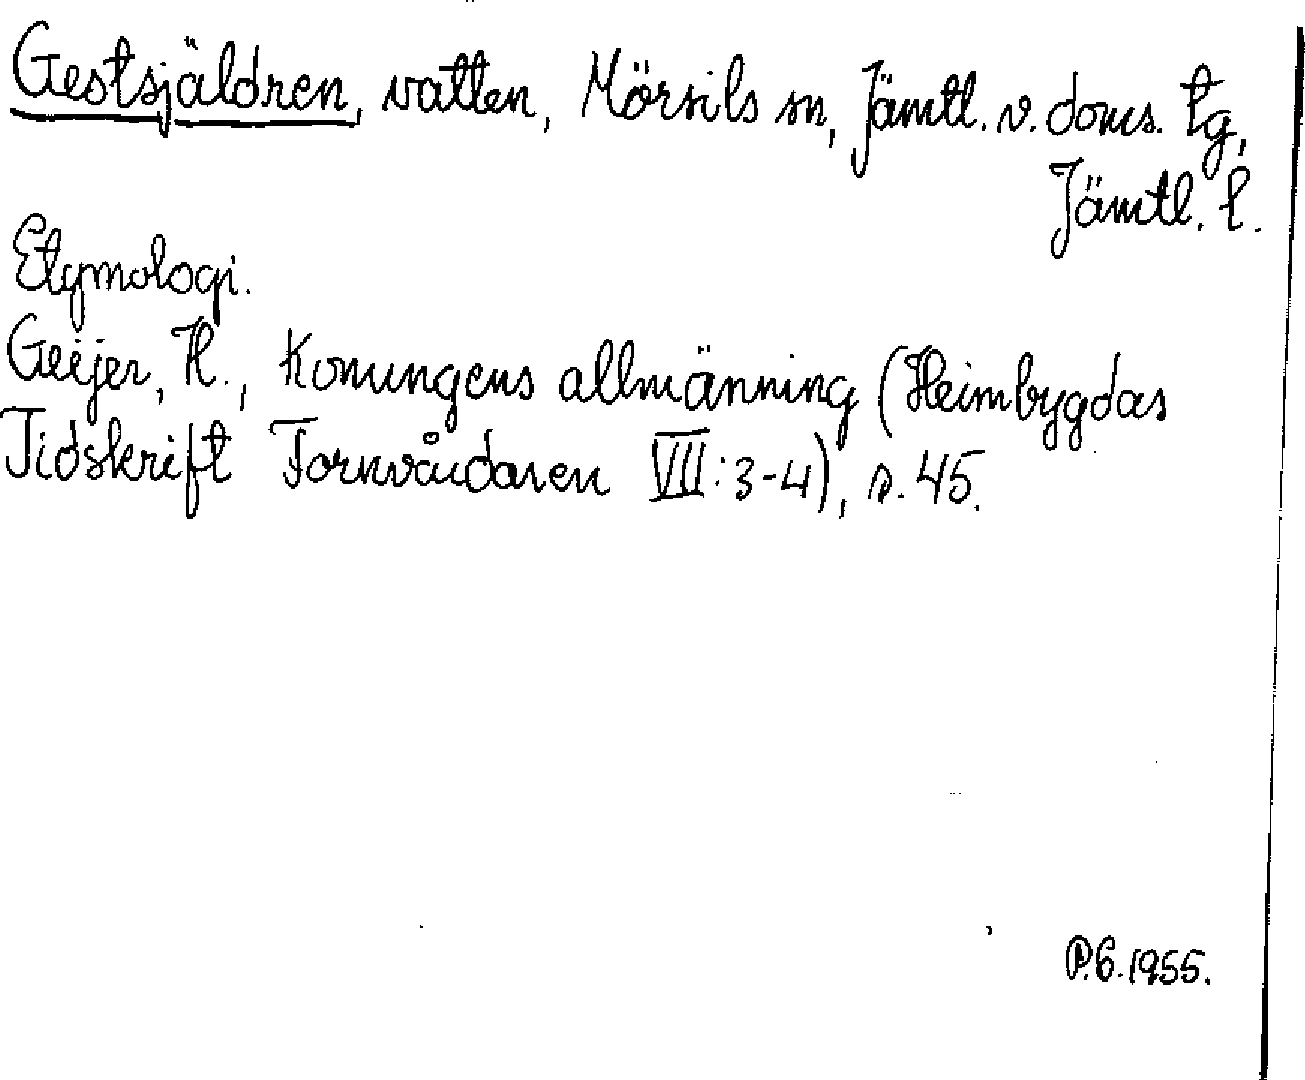 Gestsjäldren, vatten, Mörsils sn, Jämtl. v. doms. tg,
Jämtl. l.
Etymologi.
Geijer, H., Konungens allmänning (Heimbygdas
Tidskrift Fornvårdaren VII:3-4), s. 45.
P.G. 1955.